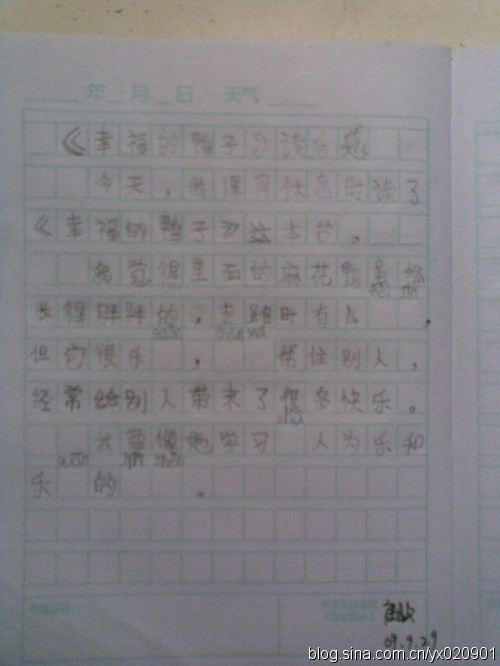 年 月 日 天气
《幸福的鸭子》读后感
今天，我课间休息时读了
《幸福的鸭子》这本书。
我觉得里面的麻花鸭虽然
长得胖胖的，走路时有点 ，
但它很乐 ， 帮住别人，
经常给别人带来了很多快乐。
我要像她学习 人为乐和
乐 的 。
09.9.29
blog.sina.com.cn/yx020901